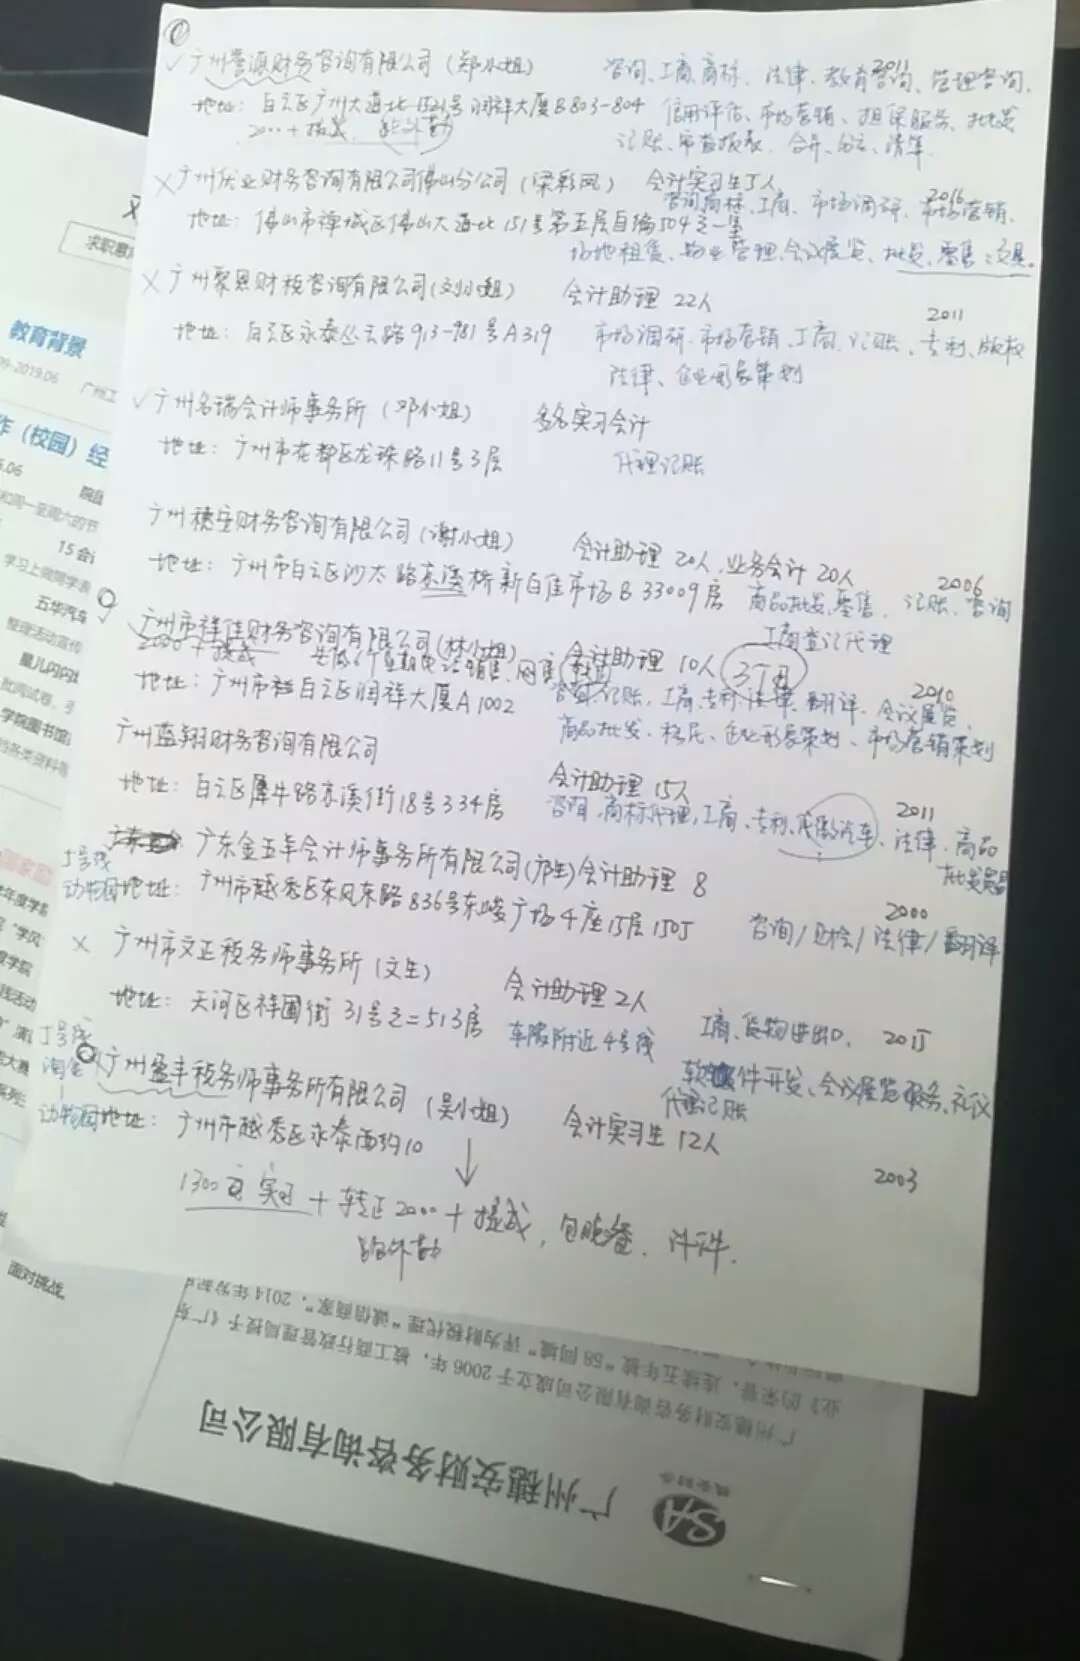 广州誉源财务咨询有限公司（郑小姐） 2011
咨询、工商、商标、法律、教育咨询、管理咨询、
地址：白云区广州大道北1521号润祥大厦B803-804 信用评估、市场营销、担保服务、批发
2000+提成
记账、审查报表、合并、分立、清算
×广州庆业财务咨询有限公司佛山分公司（梁彩凤） 会计实习生5人 2016
咨询商标、工商、市场调研、市场营销、
地址：佛山市禅城区佛山大道北151号第五层自编504之一
场地租赁、物业管理、会议展览、批发、零售：文具。
×广州聚恩财税咨询有限公司（刘小姐） 会计助理 22人 2011
地址：白云区永泰丛云路913-981号A319 市场调研、市场营销、工商、记账、专利、版权
法律、企业形象策划
✓广州名瑞会计师事务所（邓小姐） 多名实习会计
地址：广州市花都区龙珠路11号3层 代理记账
广州穗安财务咨询有限公司（谢小姐） 会计助理 20人，业务会计 20人 2006
地址：广州市白云区沙太路京溪桥新百佳市场B 33009房 商品批发、零售、记账、咨询
工商登记代理
✓广州市祥佳财务咨询有限公司（林小姐） 会计助理 10人 3个月 2010
2000+提成
地址：广州市白云区润祥大厦A1002 咨询、记账、工商、专利、法律、翻译、会议展览、
商品批发、移民、企业形象策划、市场营销策划
广州蓝翔财务咨询有限公司 会计助理 15人 2011
地址：白云区犀牛路京溪街18号334房 咨询、商标代理、工商、专利、代缴汽车、法律、商品
批发贸易
5号线 广东金五羊会计师事务所有限公司（卢生）会计助理 8 2000
动物园 地址：广州市越秀区东风东路836号东峻广场4座15层1505 咨询/财会/法律/翻译
× 广州市文正税务师事务所（文生） 会计助理 2人 2015
地址：天河区祥圃街31号之二513房 车陂附近4号线 工商、货物进出口、
软件开发、会议展览服务、礼仪
代理记账
5号线
淘金 广州盈丰税务师事务所有限公司（吴小姐） 会计实习生 12人 2003
动物园 地址：广州市越秀区永泰西约10
1300 实习 + 转正2000+提成，包晚餐、
跑外勤
求职意
教育背景
09-2019.06 广州工
作（校园）经
5.06
15会
五华汽车
面对挑战。
广州穗安财务咨询有限公司
SA
穗安财务
广州穗安财务咨询有限公司成立于2006年，被工商行政管理局授予《广东
业》的荣誉，连续五年被“58同城”评为财税代理“诚信商家”，2014年